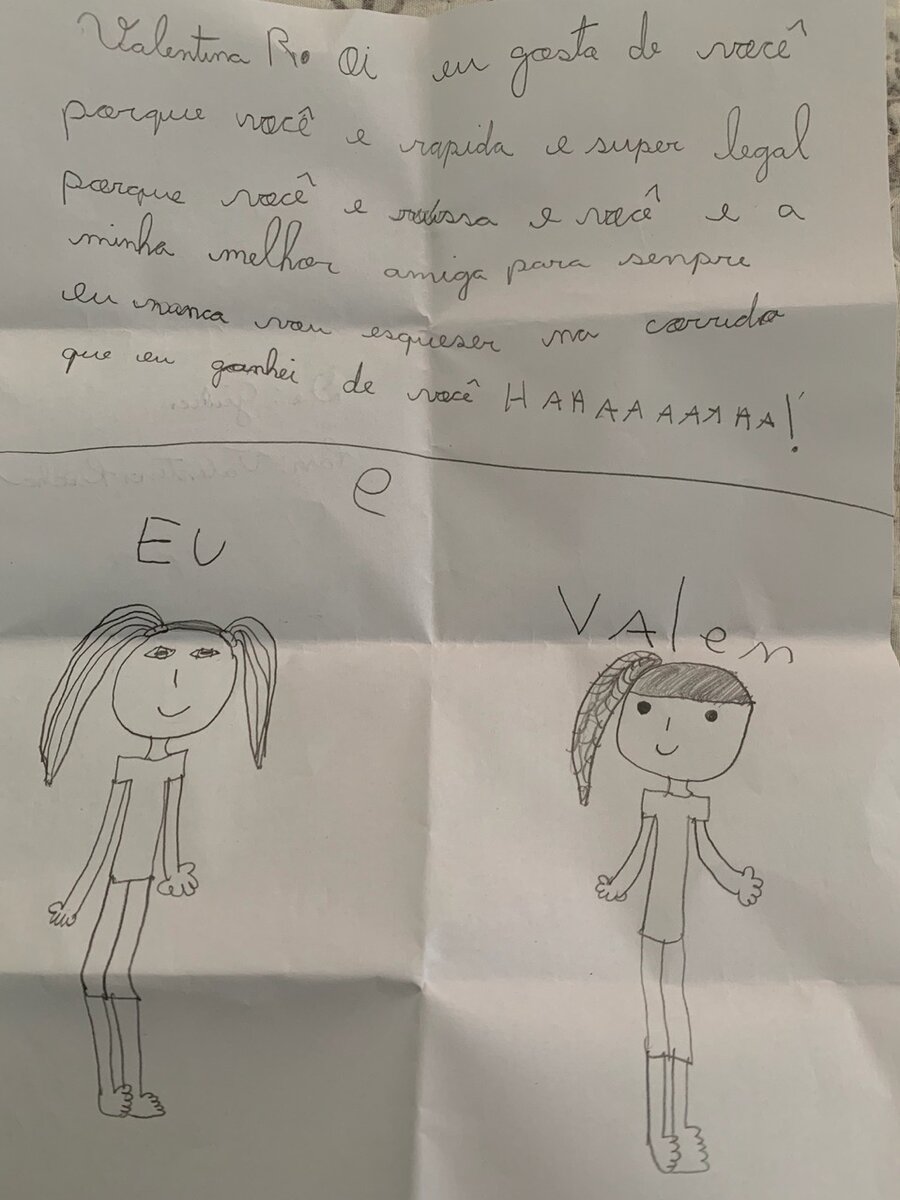 Valentina R. Oi eu gosta de você
porque você e rapida e super legal
porque você e e você e a
minha melhor amiga para senpre
eu nanca vou esqueser na corrida
que eu ganhei de você HAHAAAAAHA!
e
EU
Valen